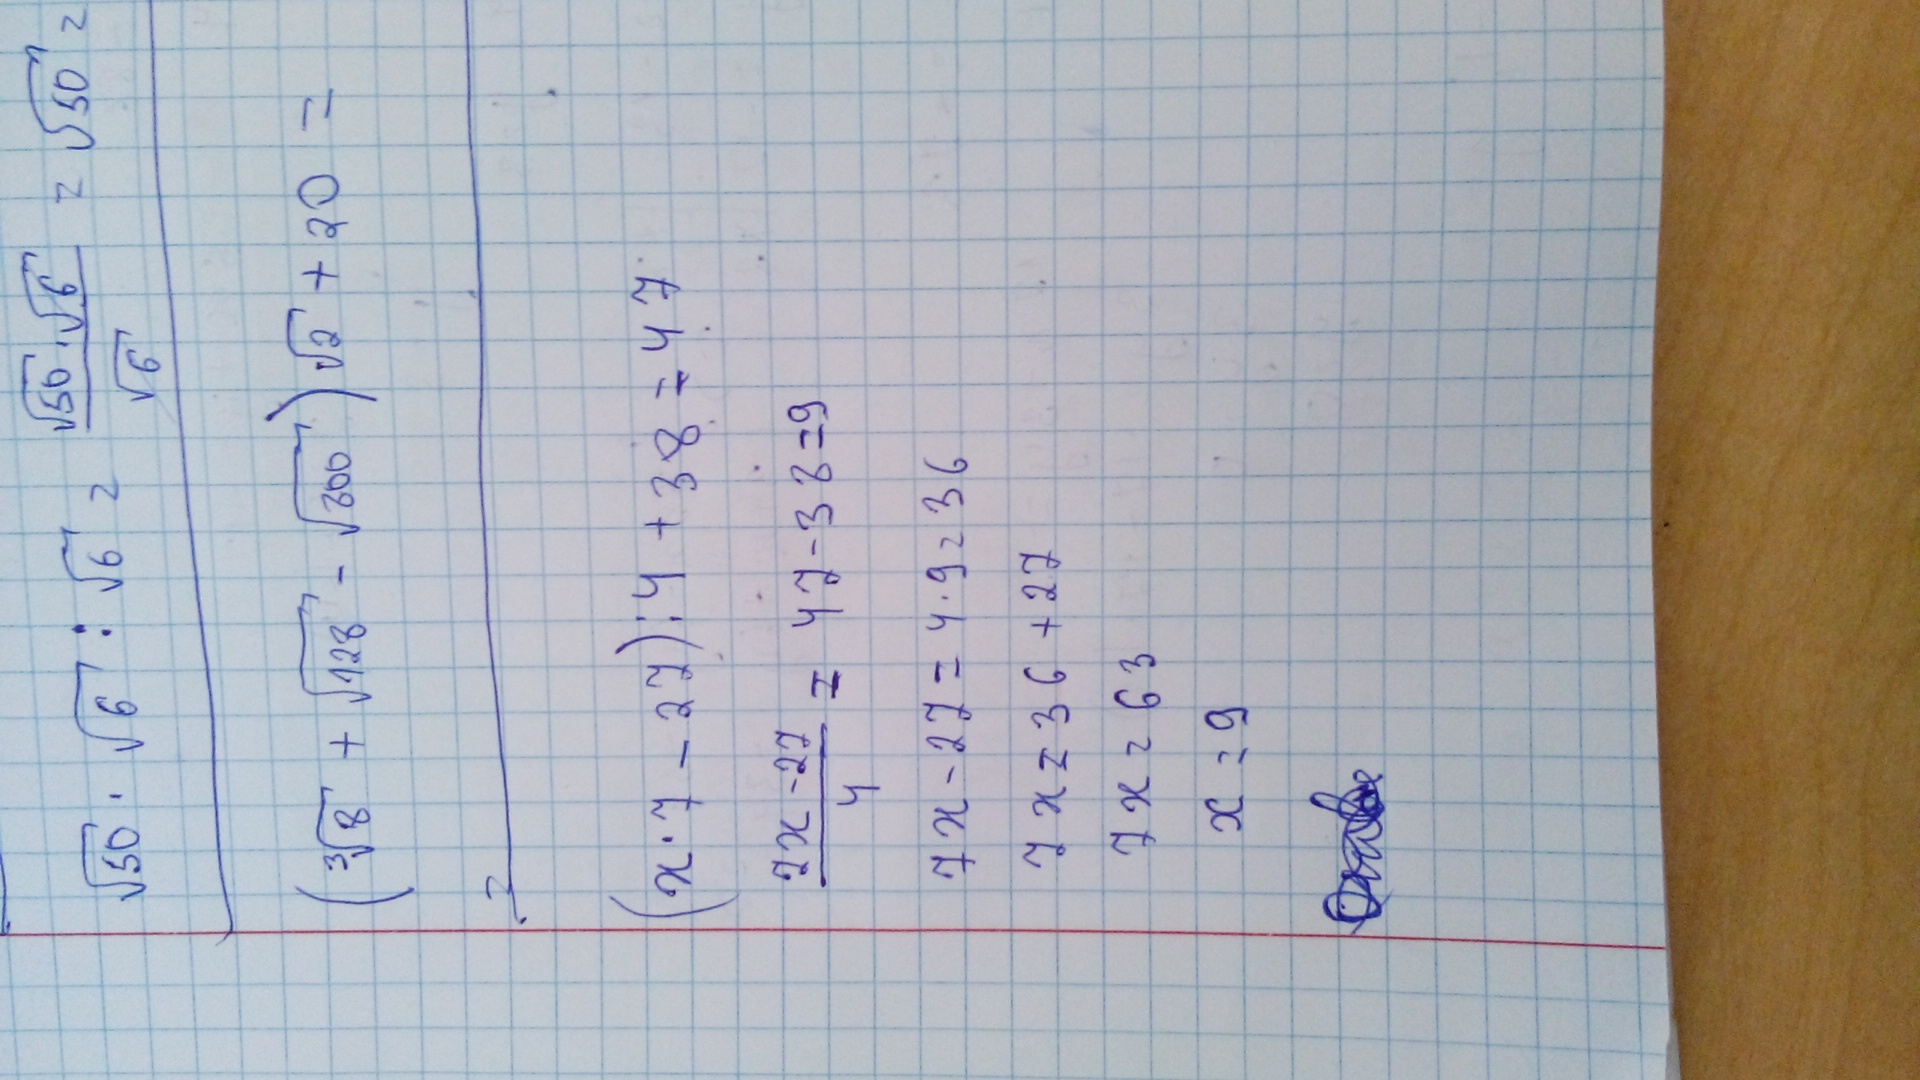 √50 · √6 : √6 = √50·√6 / √6 = √50 =
(³√8 + √128 - √300)·√2 + 20 =
=
(x·7 - 27):4 + 38 = 47
7x - 27 / 4 = 47-38=9
7x - 27 = 4·9=36
7x = 36 + 27
7x = 63
x = 9